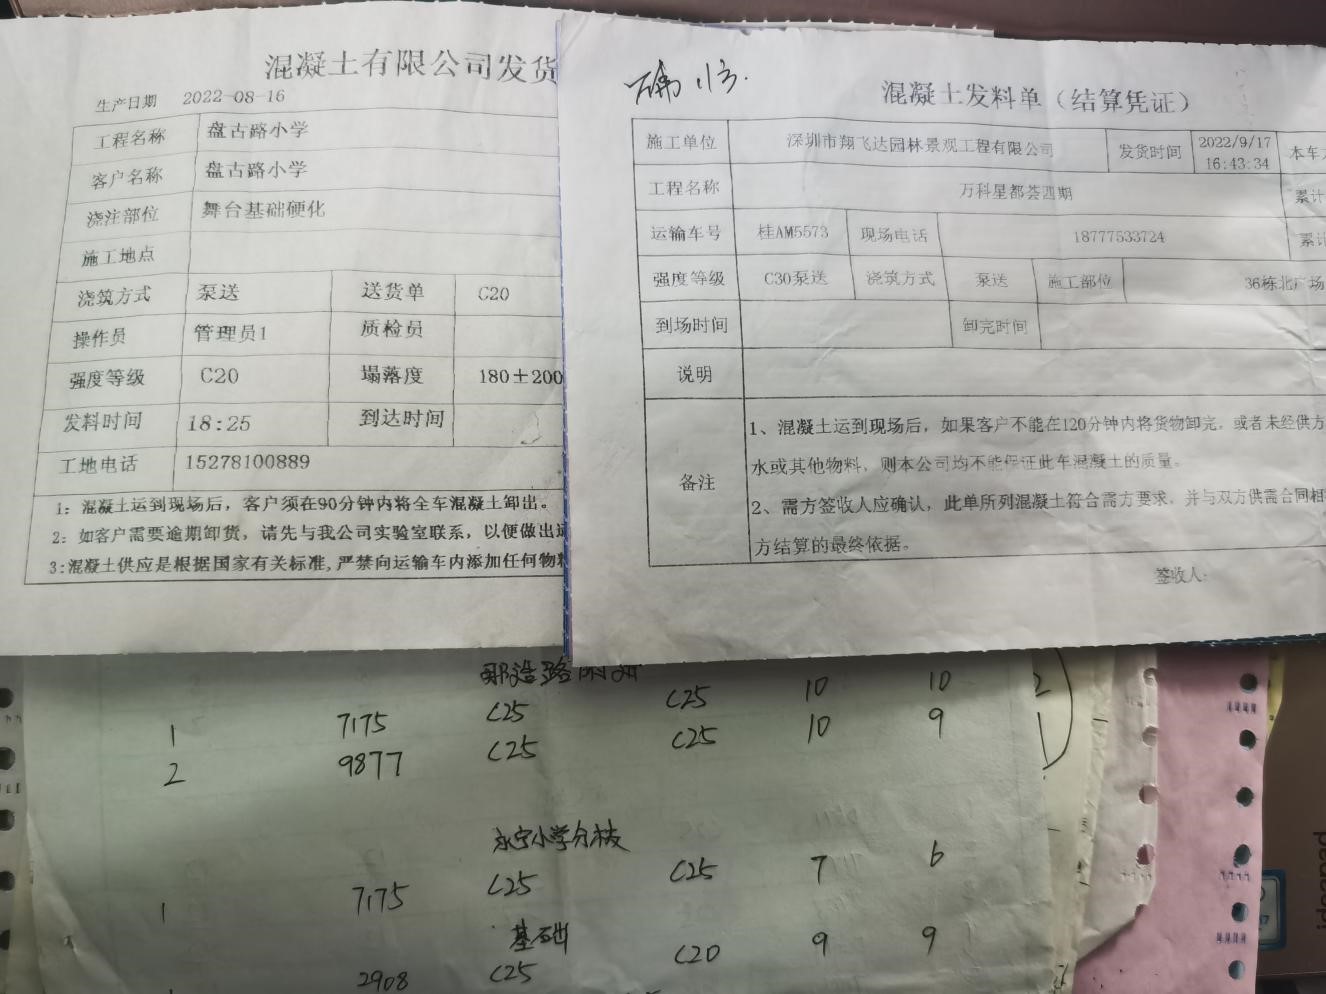 混凝土有限公司发货
生产日期 2022-08-16
工程名称 盘古路小学
客户名称 盘古路小学
浇注部位 舞台基础硬化
施工地点
浇筑方式 泵送 送货单 C20
操作员 管理员1 质检员
强度等级 C20 塌落度 180±200
发料时间 18:25 到达时间
工地电话 15278100889
1：混凝土运到现场后，客户须在90分钟内将全车混凝土卸出。
2：如客户需要逾期卸货，请先与我公司实验室联系，以便做出
3:混凝土供应是根据国家有关标准,严禁向运输车内添加任何物料
混凝土发料单（结算凭证）
施工单位 深圳市翔飞达园林景观工程有限公司 发货时间 2022/9/17 16:43:34 本车
工程名称 万科星都荟四期 累计
运输车号 桂AM5573 现场电话 18777533724 累计
强度等级 C30泵送 浇筑方式 泵送 施工部位 36栋北广场
到场时间 卸完时间
说明
备注
1、混凝土运到现场后，如果客户不能在120分钟内将货物卸完，或者未经供方
水或其他物料，则本公司均不能保证此车混凝土的质量。
2、需方签收人应确认，此单所列混凝土符合需方要求，并与双方供需合同相
方结算的最终依据。
签收人:
C25 10 10 2
1 7175 C25
C25 10 9 1
2 9877 C25
永宁小学分校
C25 7 6
1 7175 C25
基础
C20 9 9
2908 C25
ideapad